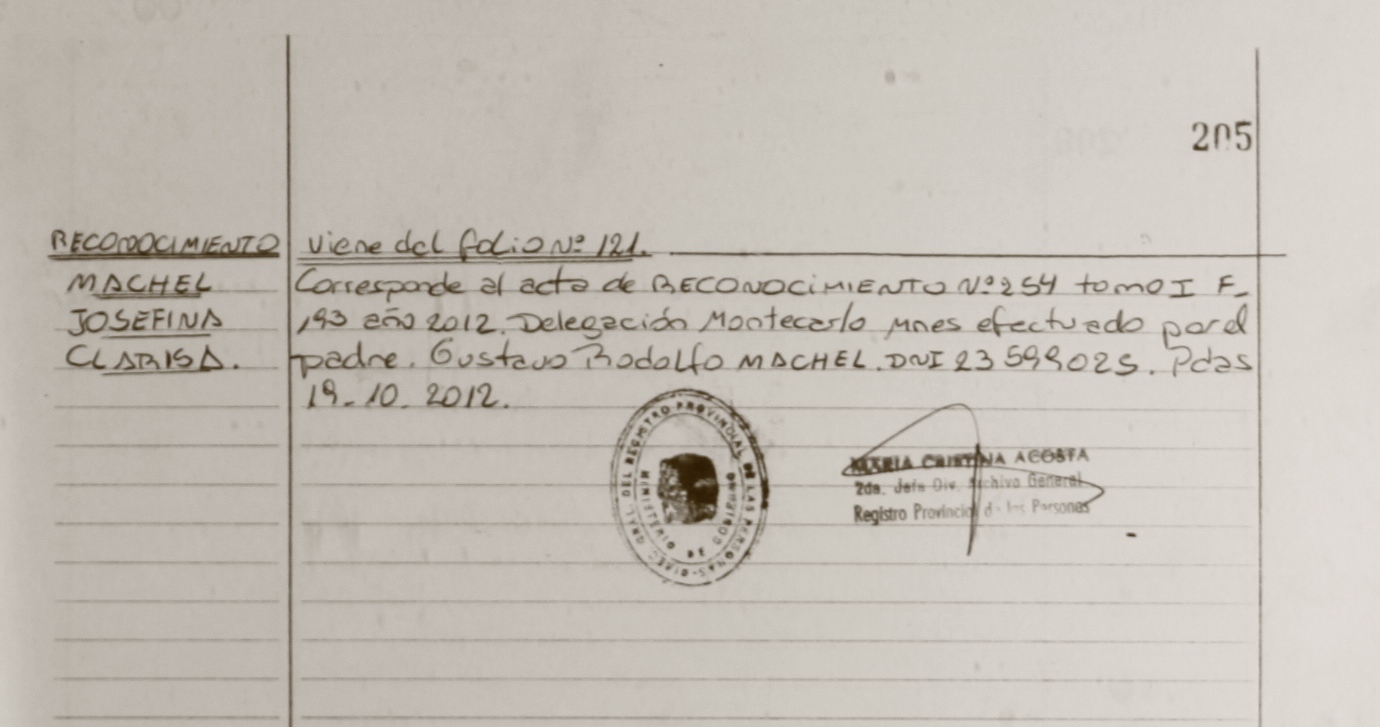 205
RECONOCIMIENTO viene del folio Nº 121.
MACHEL Corresponde al acta de RECONOCIMIENTO Nº 254 tomo I F_
JOSEFINA 193 año 2012. Delegación Montecarlo Mnes efectuado por el
CLARISA. padre. Gustavo Rodolfo MACHEL. DNI 23 599025. Pdas
19_10_2012.
DIREC. GRAL. DEL REGISTRO PROVINCIAL DE LAS PERSONAS
MINISTERIO DE GOBIERNO
MARIA CRISTINA ACOSTA
2da. Jefa Div. Archivo General
Registro Provincial de las Personas